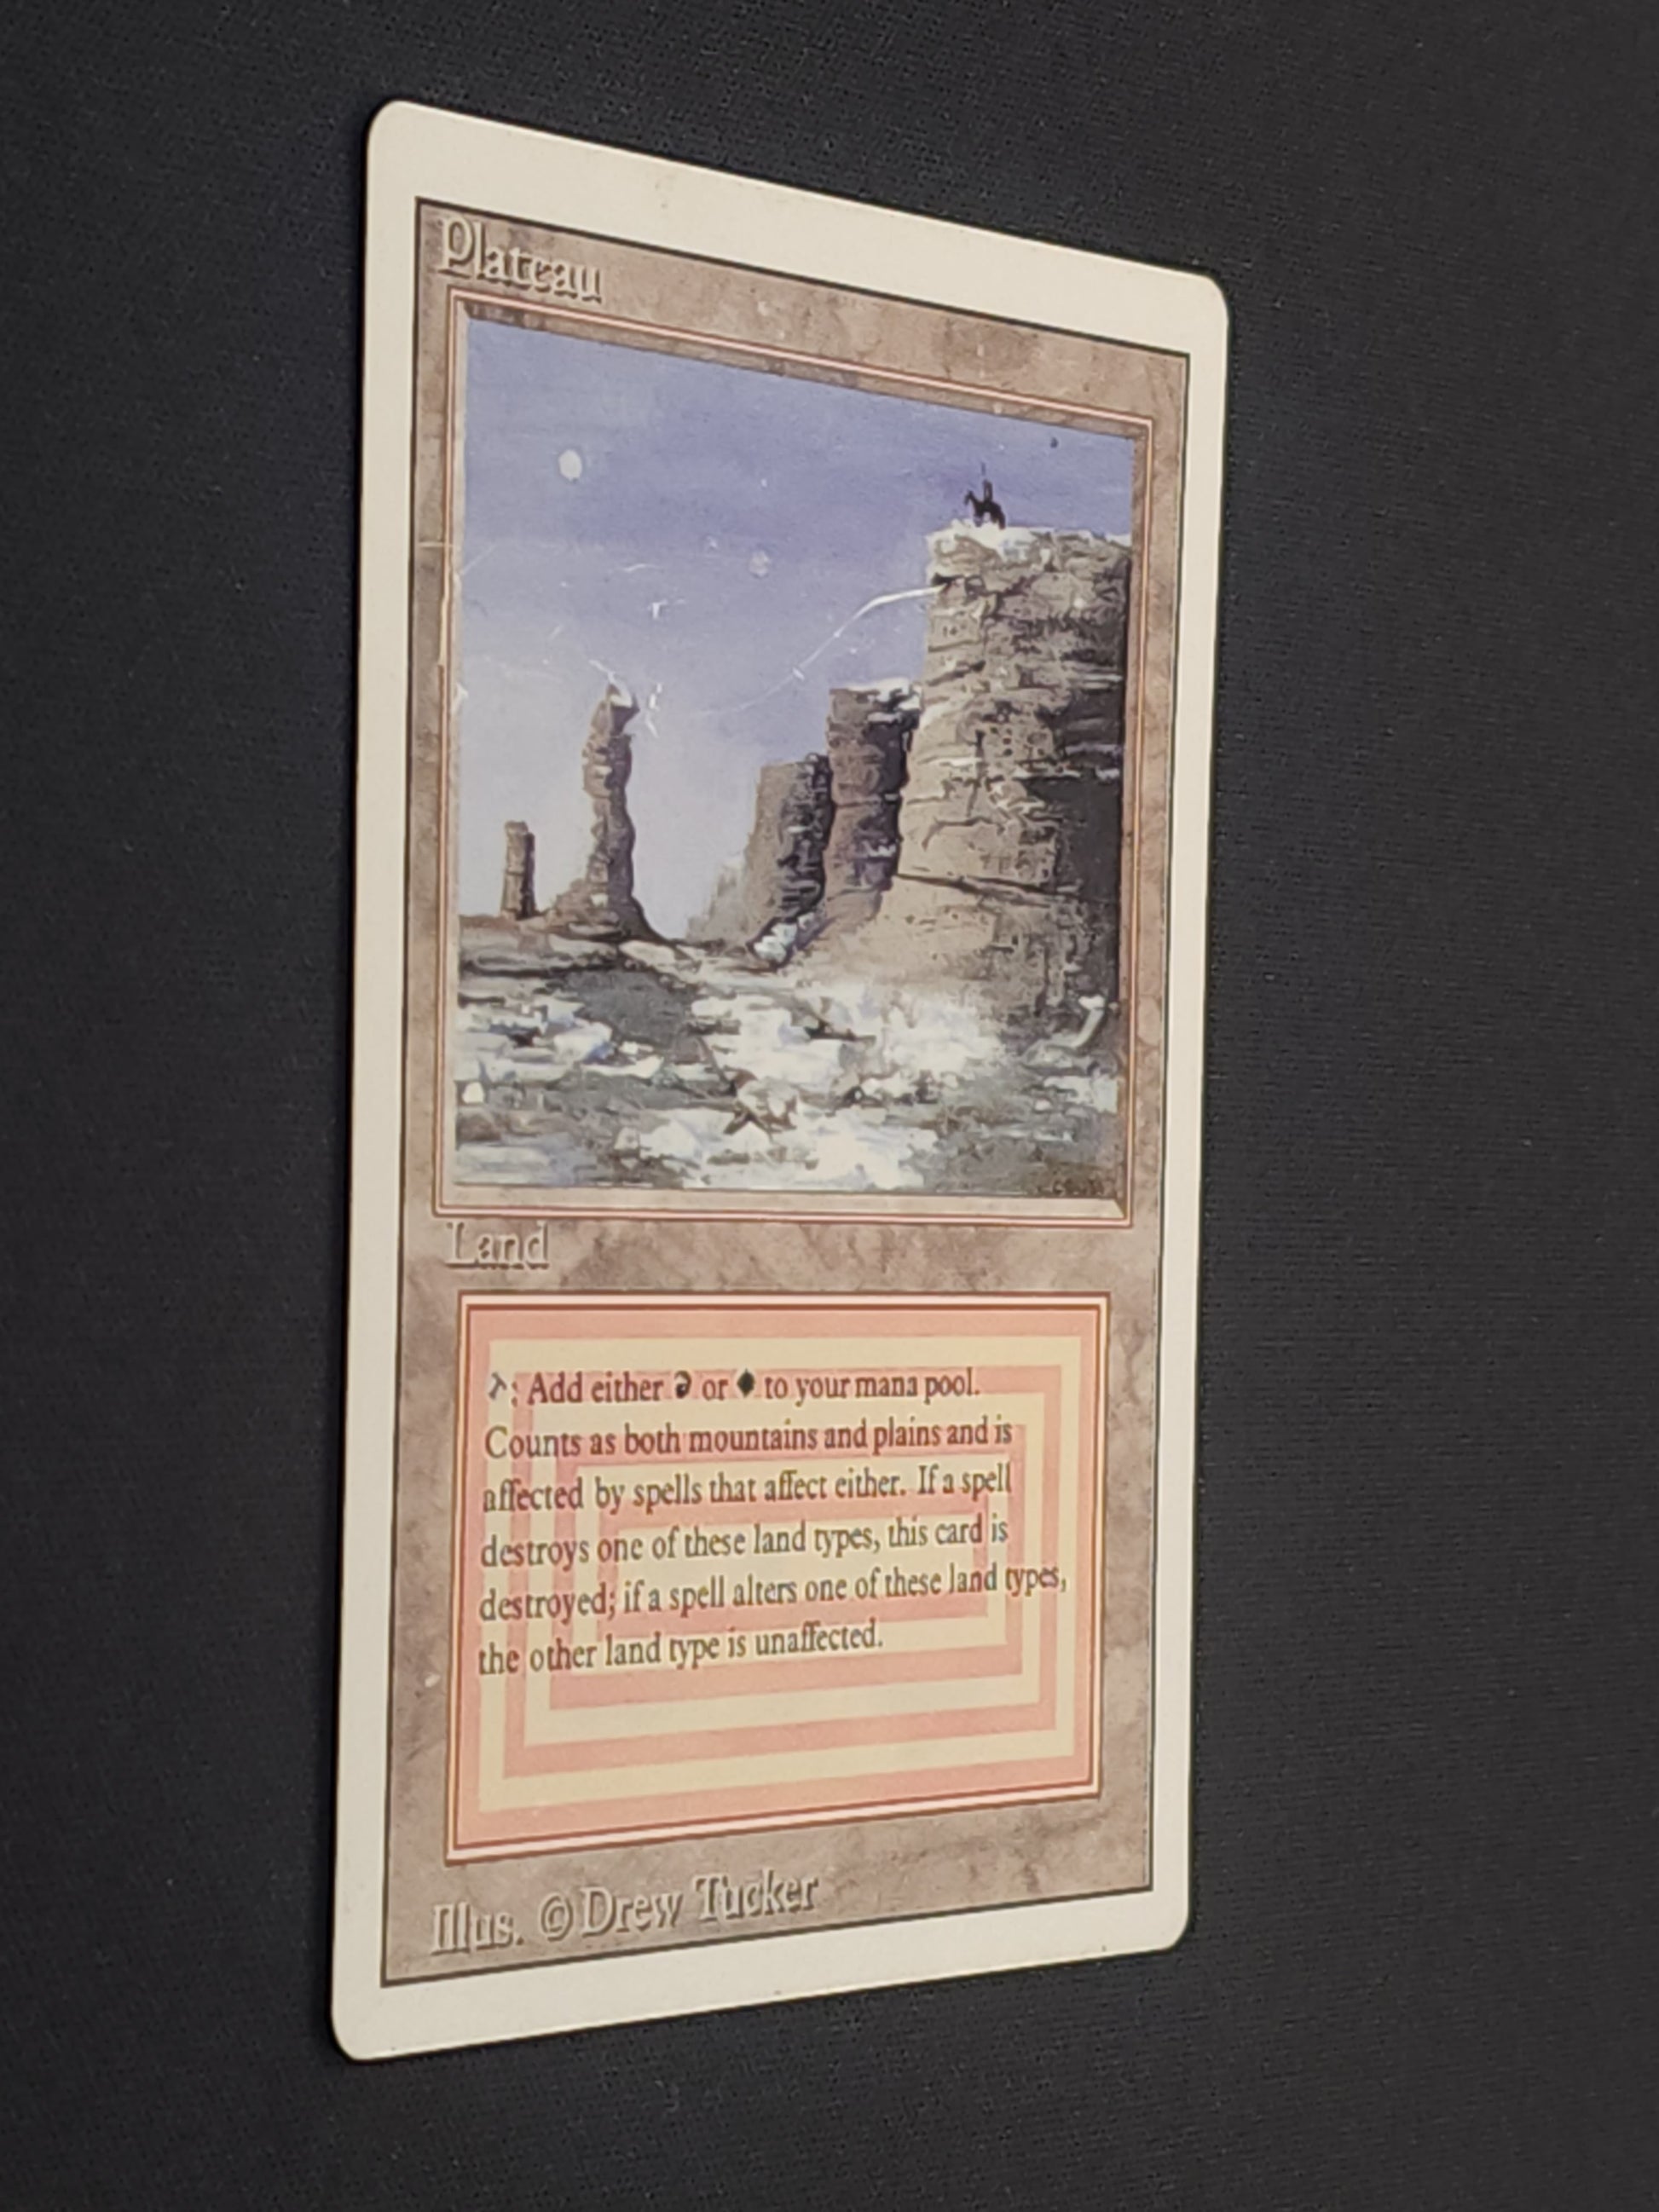 Plateau
Land
: Add either or to your mana pool.
Counts as both mountains and plains and is
affected by spells that affect either. If a spell
destroys one of these land types, this card is
destroyed; if a spell alters one of these land types,
the other land type is unaffected.
Illus. © Drew Tucker